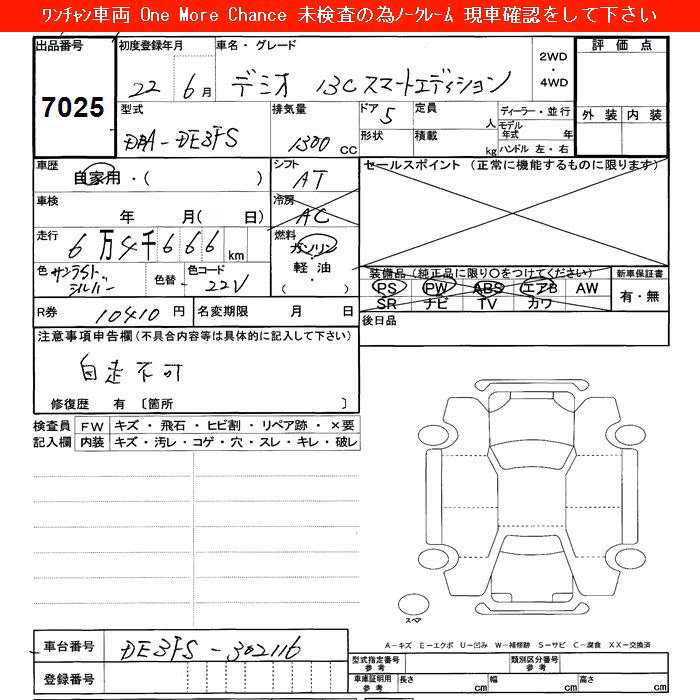 ﾜﾝﾁｬﾝ車両 One More Chance 未検査の為ﾉｰｸﾚｰﾑ 現車確認をして下さい
出品番号 初度登録年月 車名・グレード 2WD・4WD 評価点
7025 22 6月 デミオ 13C スマートエディション
外装 内装
型式 排気量 ドア 定員 ディーラー・並行
DBA-DE3FS 1300 CC 5 人 モデル年式 年
形状 積載 kg ハンドル 左・右
車歴 シフト セールスポイント (正常に機能するものに限ります)
自家用・( ) AT
車検 年 月( 日) 冷房 AC
走行 6万4千666km 燃料 ガソリン 軽油 ( ・ )
色 サンライトシルバー 色替 色コード 22V
装備品(純正品に限り○をつけてください) 新車保証書
PS PW ABS エアB AW 有・無
SR ナビ TV カワ
R券 10410円 名変期限 月 日 後日品
注意事項申告欄(不具合内容等は具体的に記入して下さい)
自走不可
修復歴 有 〔箇所 〕
検査員 FW キズ・飛石・ヒビ割・リペア跡・×要
記入欄 内装 キズ・汚レ・コゲ・穴・スレ・キレ・破レ
スペア
A-キズ E-エクボ U-凹み W-補修跡 S-サビ C-腐食 XX-交換済
車台番号 DE3FS-302116
型式指定番号 参考 類別区分番号 参考
登録番号 車庫証明用 参考 長さ cm 幅 cm 高さ cm